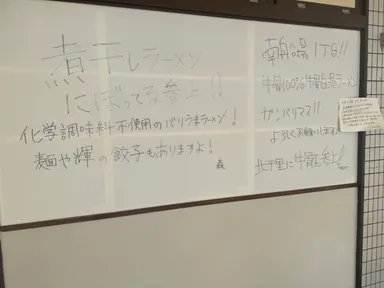 煮干しラーメン
にぼってる参上!!
化学調味料不使用のバリうまラーメン!
麺や輝の餃子もありますよ!
南船場1丁目!!
牛骨100%牛骨白湯ラーメン
ガンバリマス!!
よろしくお願いします!
北千里に牛骨匠参上!